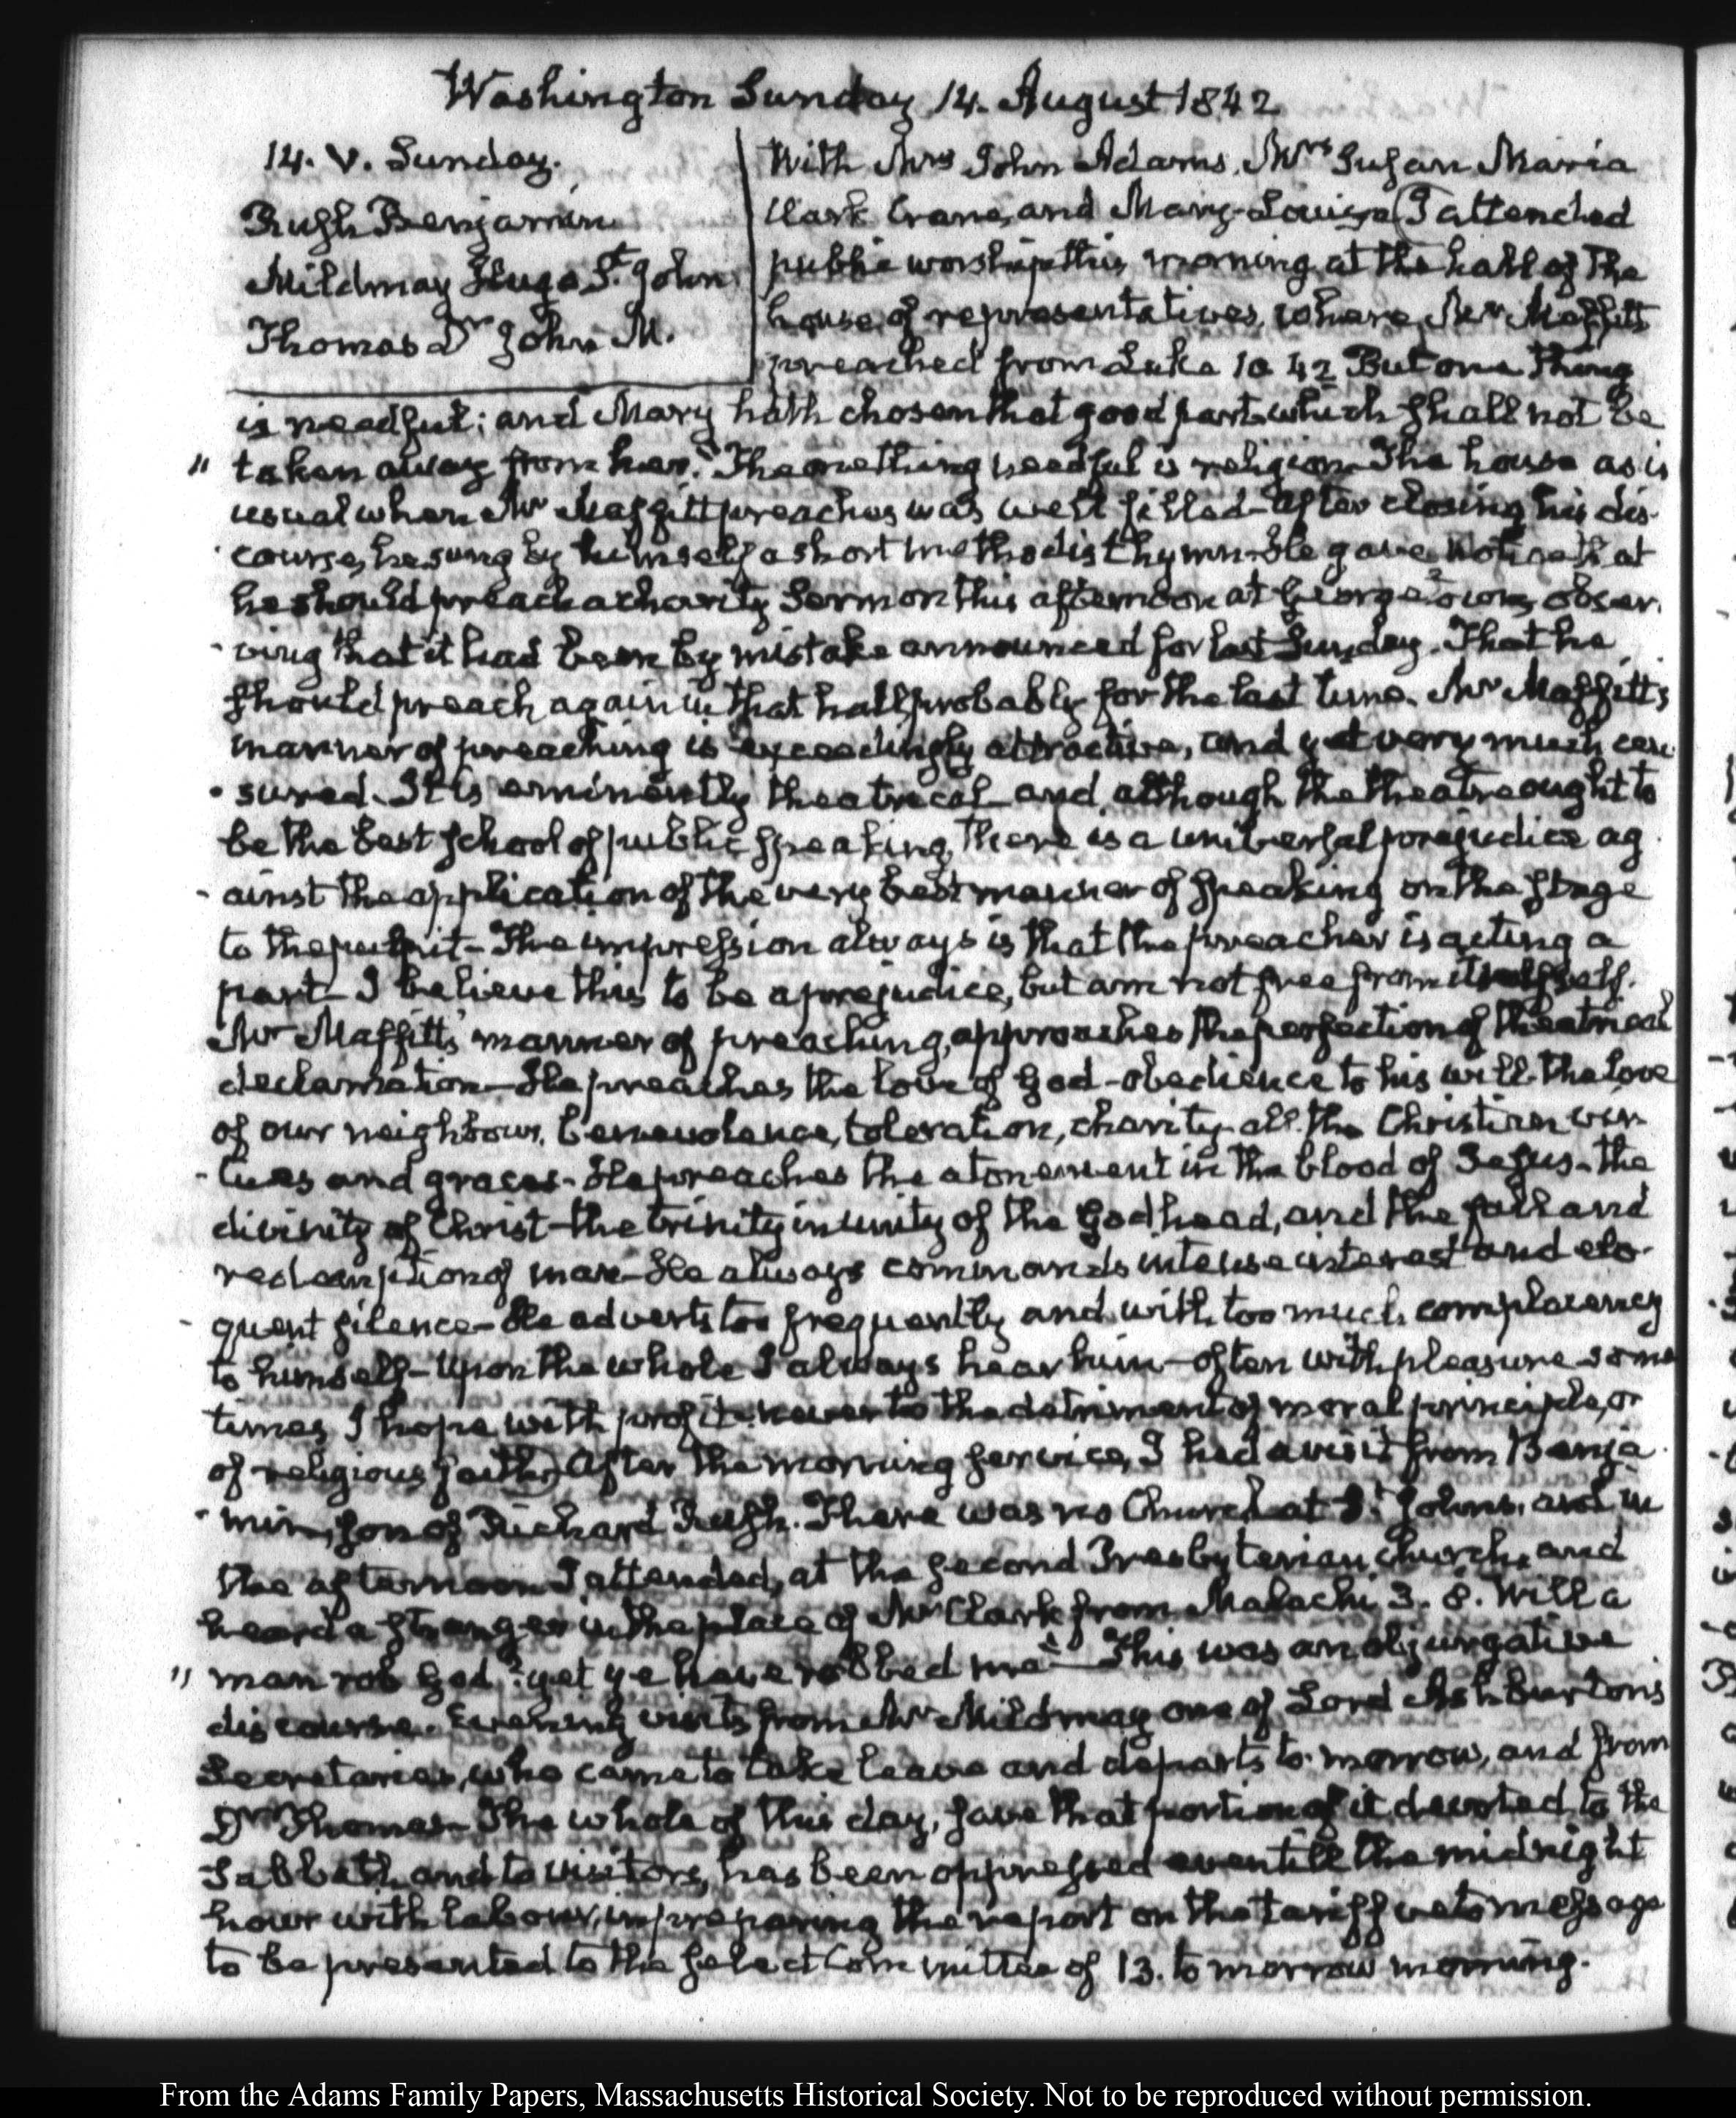 Washington Sunday 14. August 1842
14. V. Sunday.
Rush Benjamin
Mildmay Hugo St. John
Thomas Dr John M.
With Mrs John Adams, Mrs Susan Maria
Clark Crane, and Mary-Louisa I attended
public worship this morning at the hall of the
house of representatives, where Mr Maffitt
preached from Luke 10 42 But one thing
is needful; and Mary hath chosen that good part which shall not be
" taken away from her." The one thing needful is religion. The house as is
usual when Mr Maffitt preaches was well filled - After closing his dis-
course, he sung by himself a short methodist hymn. He gave notice that
he should preach a charity Sermon this afternoon at Georgetown, obser-
- ving that it had been by mistake announced for last Sunday. That he
should preach again in that hall, probably for the last time. Mr Maffitt's
manner of preaching is exceedingly attractive, and yet very much cen
- sured. It is eminently theatrical - and although the theatre ought to
be the best school of public speaking, there is a universal prejudice ag
- ainst the application of the very best manner of speaking on the stage
to the pulpit - The impression always is that the preacher is acting a
part - I believe this to be a prejudice, but am not free from it
Mr Maffitt's manner of preaching, approaches the perfection of theatrical
declamation - He preaches the love of God - obedience to his will - the love
of our neighbour, benevolence, toleration, charity, all the Christian vir
- tues and graces - He preaches the atonement in the blood of Jesus - the
divinity of Christ - the trinity in unity of the Godhead, and the fall and
redemption of man - He always commands intense interest and elo-
- quent silence - He adverts too frequently and with too much complacency
to himself - Upon the whole I always hear him - often with pleasure - some
times, I hope with profit - never to the detriment of moral principle, or
of religious faith. After the morning service, I had a visit from Benja
- min, son of Richard Rush. There was no Church at St. Johns, and in
the afternoon I attended, at the second Presbyterian church, and
heard a stranger in the place of Mr Clark from Malachi 3. 8. Will a
" man rob God? yet ye have robbed me" - This was an objurgative
discourse. Evening visits from Mr Mildmay one of Lord Ashburton's
Secretaries, who came to take leave and departs to-morrow, and from
Dr Thomas - The whole of this day, save that portion of it devoted to the
Sabbath and to visitors, has been oppressed even till the midnight
hour with labour, in preparing the report on the tariff veto message
to be presented to the select Committee of 13. to morrow morning.
From the Adams Family Papers, Massachusetts Historical Society. Not to be reproduced without permission.